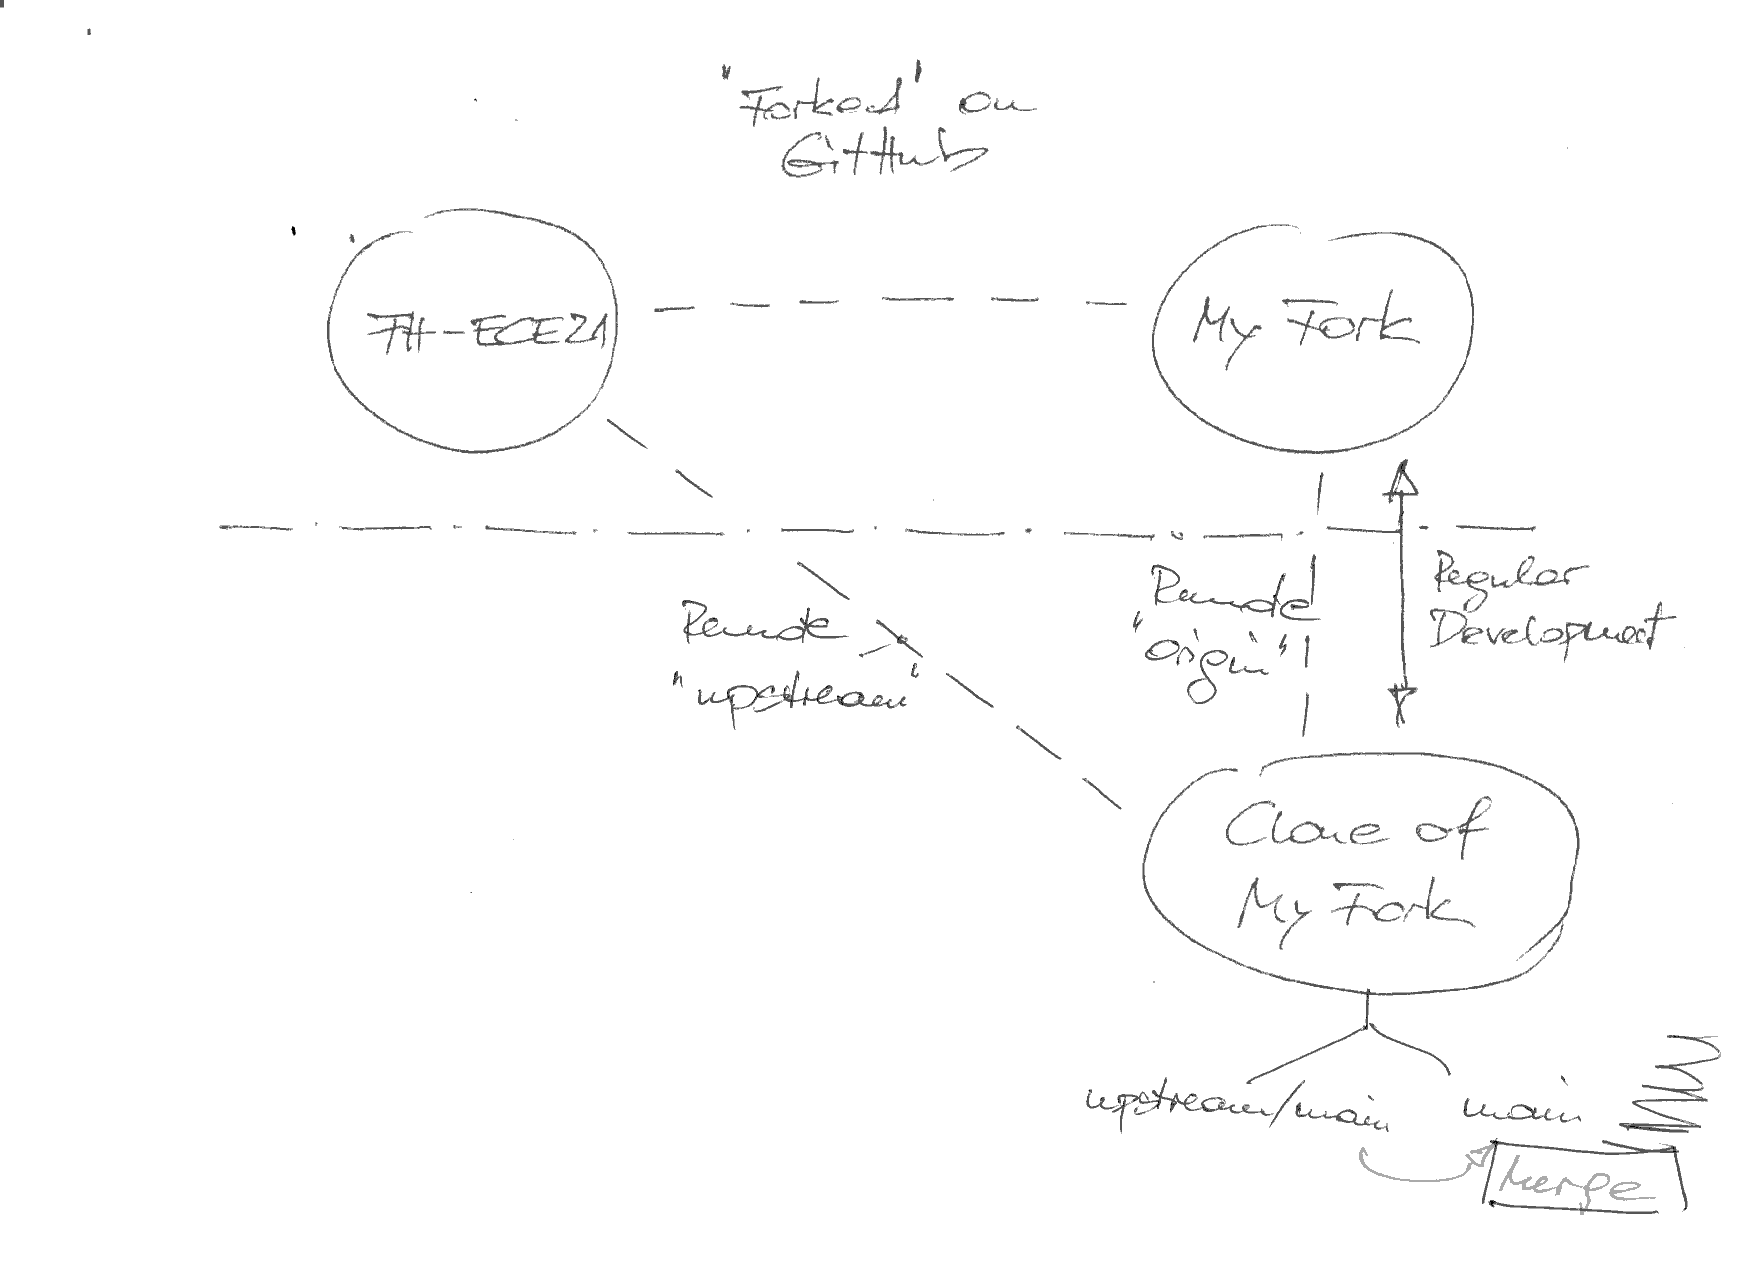 "Forked" on
GitHub
FH-ECE21
My Fork
Remote
"upstream"
Remote
"origin"
Regular
Development
Clone of
My Fork
upstream/main
main
Merge